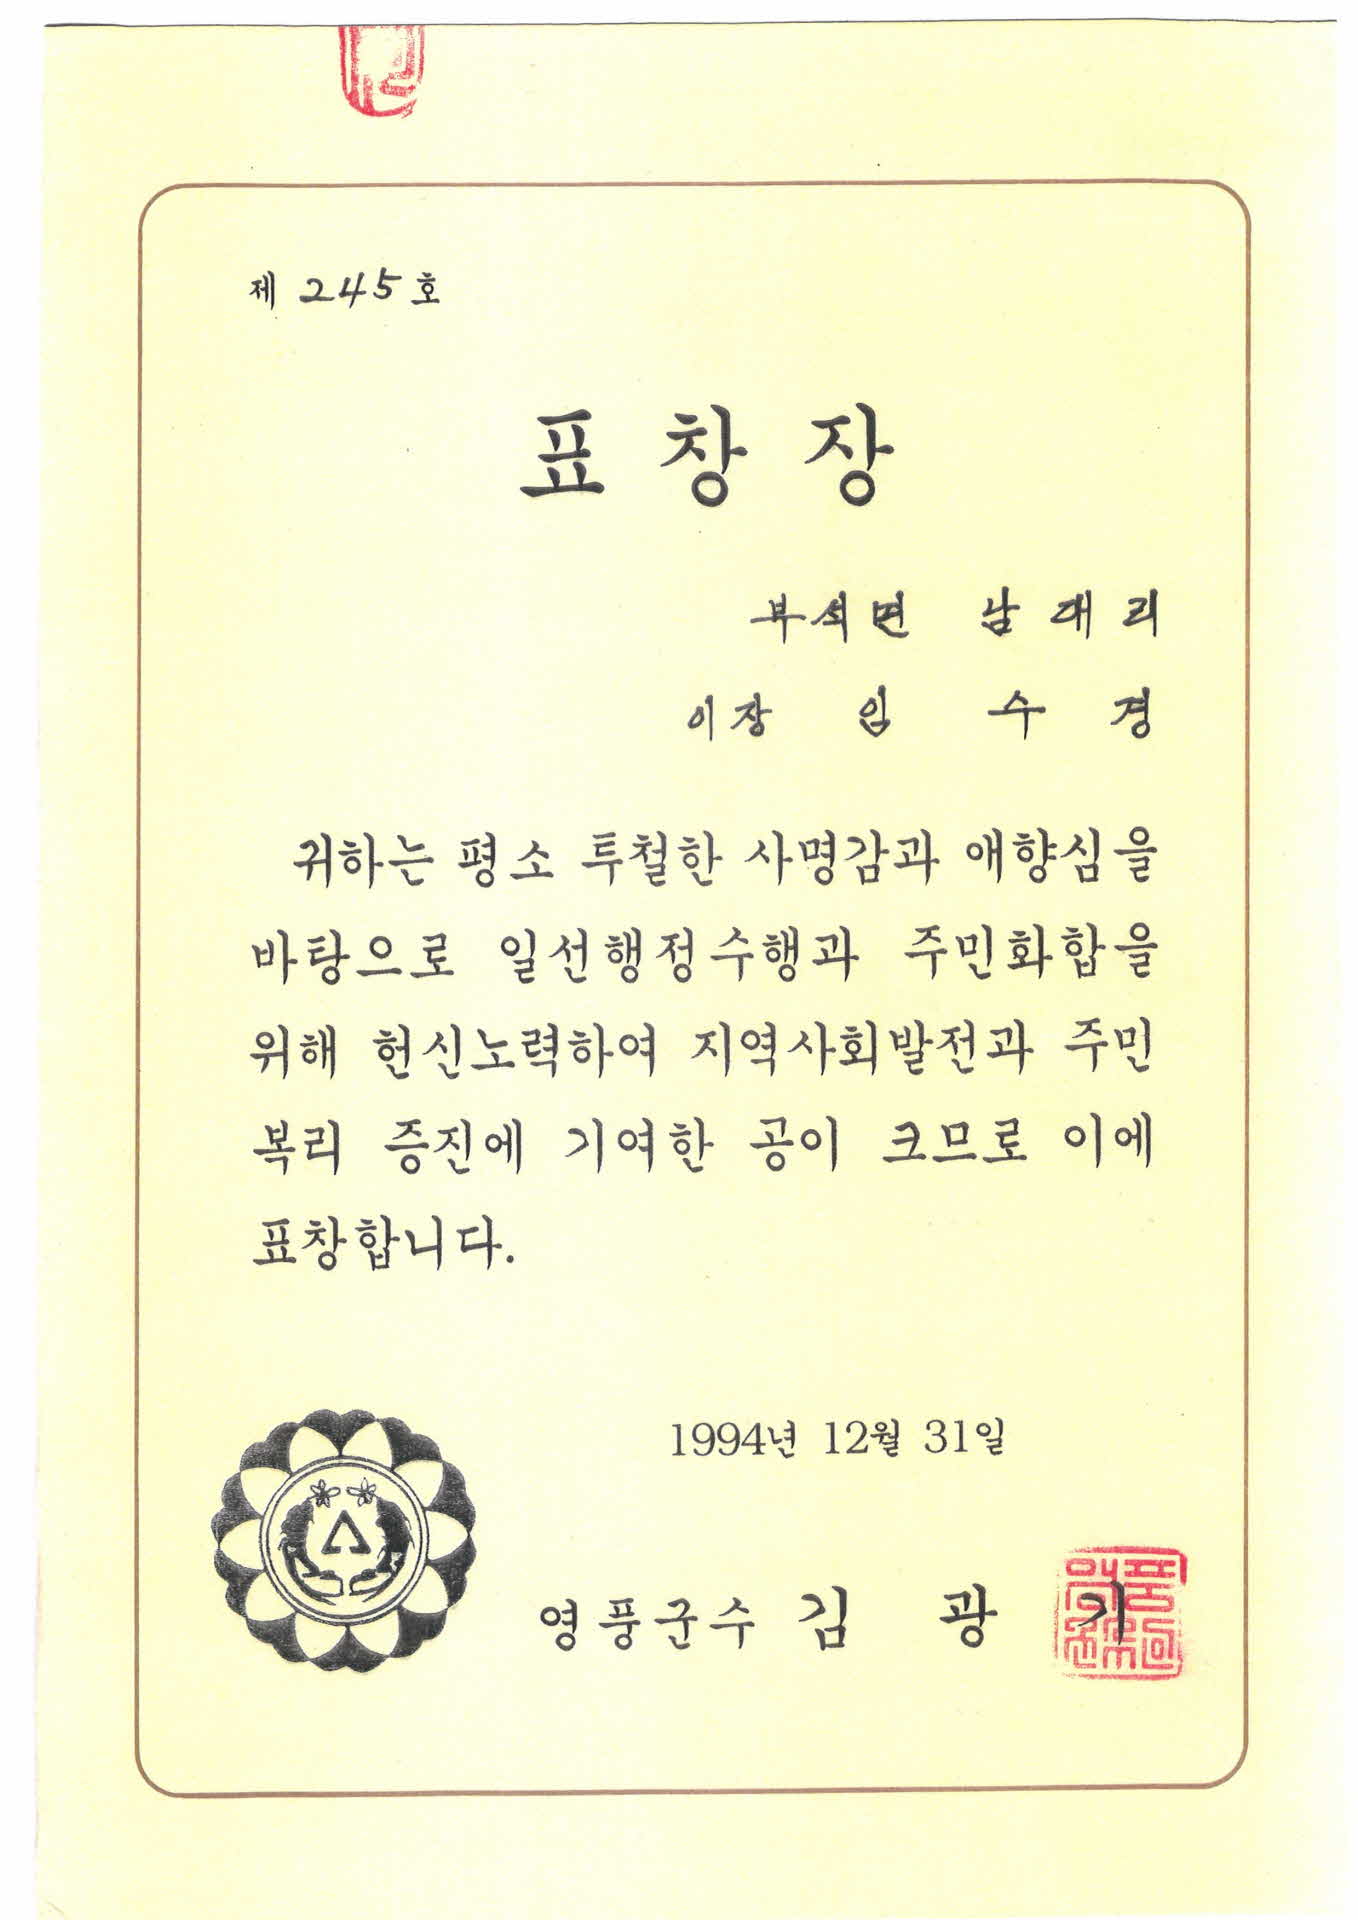 제 245 호
표 창 장
부석면 남대리
이장 임 수 경
귀하는 평소 투철한 사명감과 애향심을
바탕으로 일선행정수행과 주민화합을
위해 헌신노력하여 지역사회발전과 주민
복리 증진에 기여한 공이 크므로 이에
표창합니다.
1994년 12월 31일
영풍군수 김 광 기